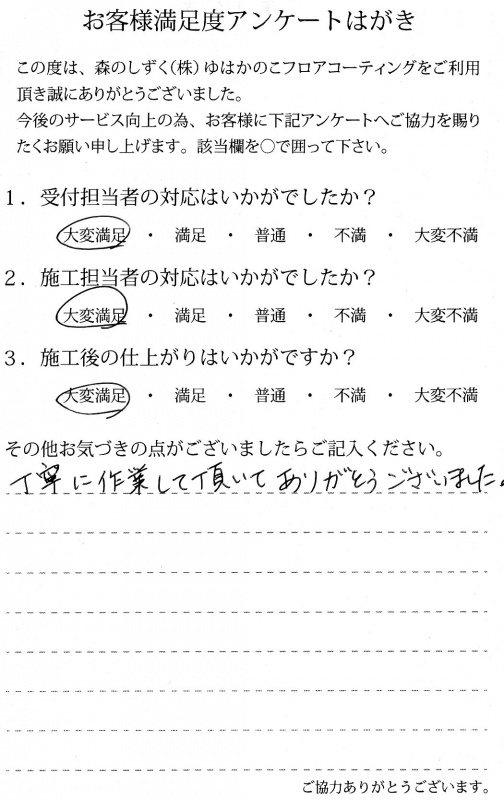 お客様満足度アンケートはがき
この度は、森のしずく(株)ゆはかのこフロアコーティングをご利用
頂き誠にありがとうございました。
今後のサービス向上の為、お客様に下記アンケートへご協力を賜り
たくお願い申し上げます。該当欄を〇で囲って下さい。
1．受付担当者の対応はいかがでしたか？
大変満足 ・ 満足 ・ 普通 ・ 不満 ・ 大変不満
2．施工担当者の対応はいかがでしたか？
大変満足 ・ 満足 ・ 普通 ・ 不満 ・ 大変不満
3．施工後の仕上がりはいかがですか？
大変満足 ・ 満足 ・ 普通 ・ 不満 ・ 大変不満
その他お気づきの点がございましたらご記入ください。
丁寧に作業して頂いてありがとうございました。
ご協力ありがとうございます。